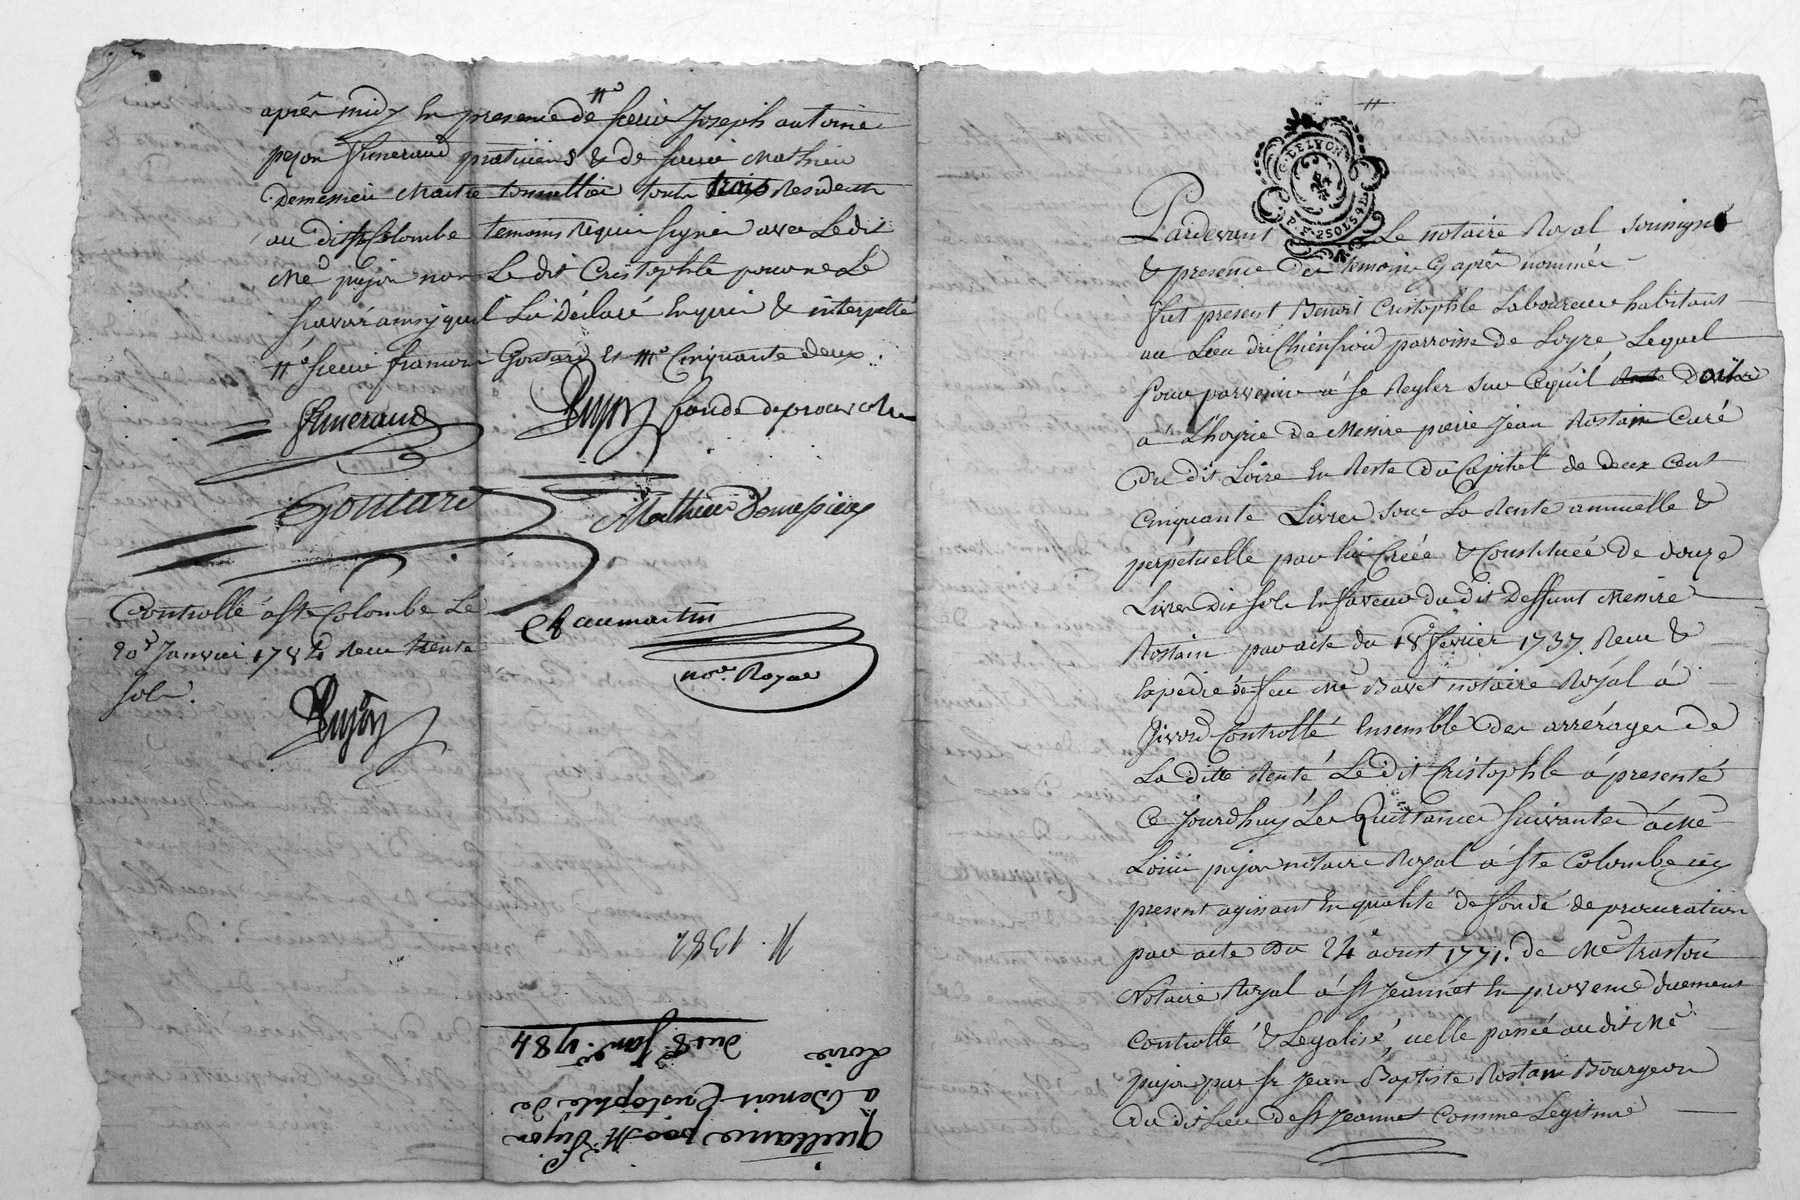 après midy En presence de sieur Joseph antoine
pejon Funeraud praticiens & de sieur Mathieu
Demepieu Maitre tonnellier touts trois Residents
au dit Ste Colombe temoins Requis signés avec Ledit
Me pujon non Le dit Cristophle pour ne Le
scavoir ainsy quil L'a Déclaré Enquis & interpellé
sieur francois Goutard Et Cinquante deux
Funeraud
Pujon fondé de procuration
Goutard
Mathieu Demepieux
Controllé a Ste Colombe Le
20e Janvier 1784 Recu trente
sols.
Pujon
Chaumartin
nore. Royal
N. 1382
Quittance pour Me Pujon
a Benoit Cristophle de
Loire
du 8e Janr. 1784
G. DE LYON
P.F. 2 SOLS 4 D
Pardevant Le notaire Royal soussigné
& presence des temoins Cy après nommés
fut present Benoit Cristophle Laboureur habitant
au Lieu du Chienfroid parroisse de Loyre Lequel
pour parvenir a se Regler sur Cequil Doit
a L'hoyrie de Messire pierre Jean Rostain Curé
Du dit Loire En Reste Du Capital de deux Cent
Cinquante Livres sous La Rente annuelle &
perpétuelle par lui Créée & Constituée De douze
Livres Dix sols En faveur du dit Deffunt Messire
Rostain par acte du 18e fevrier 1737 Recu &
Expedié de feu Me Bavet notaire Royal à
Givord Controllé Ensemble Des arrérages De
La ditte Rente Le dit Cristophle à presenté
Ce Jourdhuy Les Quittances suivantes à Me
Louis pujon notaire Royal à Ste Colombe icy
present agissant En qualité de fondé de procuration
par acte Du 24e aoust 1771. de Me trastou
Notaire Royal à St Jeannet En provence duement
Controllé & Legalisé, icelle passée au dit Me
pujon par sr Jean Baptiste Rostain Bourgeois
Du dit Lieu de St Jeannet Comme Legitime